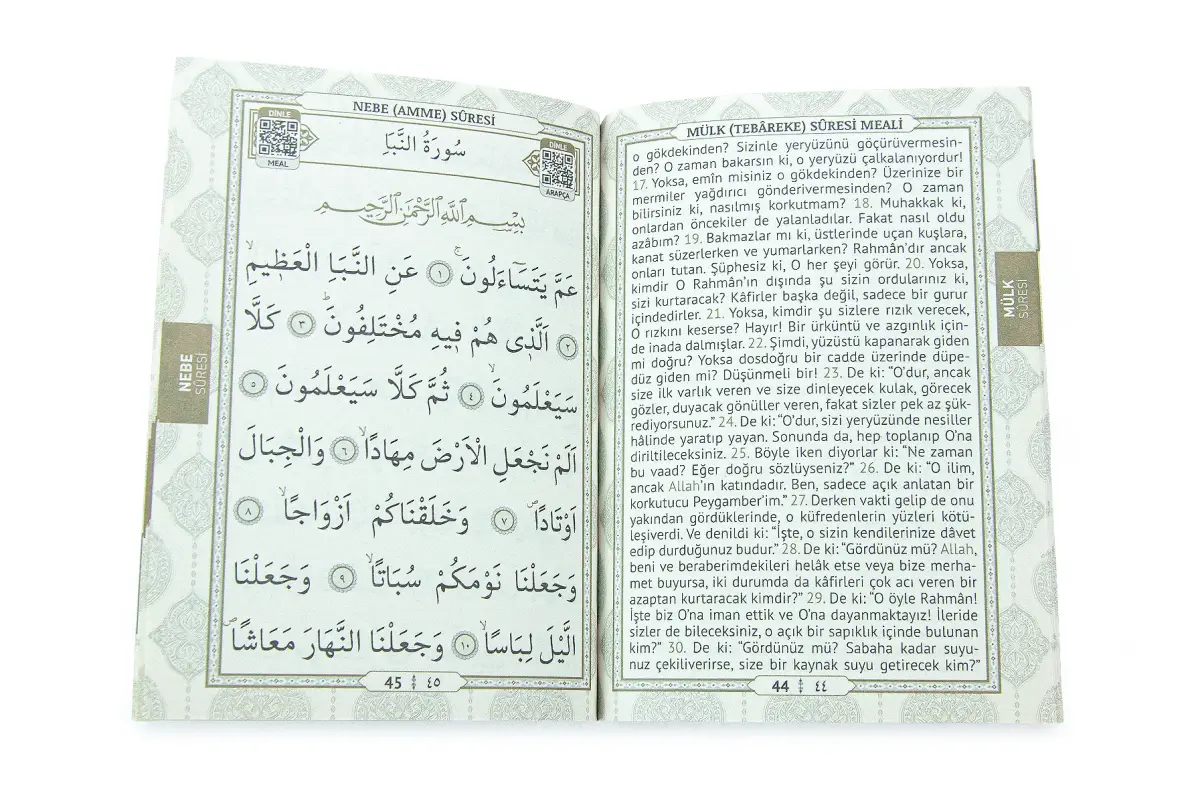 MÜLK (TEBÂREKE) SÛRESİ MEALİ
o gökdekinden? Sizinle yeryüzünü göçürüvermesin-
den? O zaman bakarsın ki, o yeryüzü çalkalanıyordur!
17. Yoksa, emîn misiniz o gökdekinden? Üzerinize bir
mermiler yağdırıcı gönderivermesinden? O zaman
bilirsiniz ki, nasılmış korkutmam? 18. Muhakkak ki,
onlardan öncekiler de yalanladılar. Fakat nasıl oldu
azâbım? 19. Bakmazlar mı ki, üstlerinde uçan kuşlara,
kanat süzerlerken ve yumarlarken? Rahmân’dır ancak
onları tutan. Şüphesiz ki, O her şeyi görür. 20. Yoksa,
kimdir O Rahmân’ın dışında şu sizin ordularınız ki,
sizi kurtaracak? Kâfirler başka değil, sadece bir gurur
içindedirler. 21. Yoksa, kimdir şu sizlere rızık verecek,
O rızkını keserse? Hayır! Bir ürküntü ve azgınlık için-
de inada dalmışlar. 22. Şimdi, yüzüstü kapanarak giden
mi doğru? Yoksa dosdoğru bir cadde üzerinde düpe-
düz giden mi? Düşünmeli bir! 23. De ki: “O’dur, ancak
size ilk varlık veren ve size dinleyecek kulak, görecek
gözler, duyacak gönüller veren, fakat sizler pek az şük-
rediyorsunuz.” 24. De ki: “O’dur, sizi yeryüzünde nesiller
hâlinde yaratıp yayan. Sonunda da, hep toplanıp O’na
diriltileceksiniz. 25. Böyle iken diyorlar ki: “Ne zaman
bu vaad? Eğer doğru sözlüyseniz?” 26. De ki: “O ilim,
ancak Allah’ın katındadır. Ben, sadece açık anlatan bir
korkutucu Peygamber’im.” 27. Derken vakti gelip de onu
yakından gördüklerinde, o küfredenlerin yüzleri kötü-
leşiverdi. Ve denildi ki: “İşte, o sizin kendilerinize dâvet
edip durduğunuz budur.” 28. De ki: “Gördünüz mü? Allah,
beni ve beraberimdekileri helâk etse veya bize merha-
met buyursa, iki durumda da kâfirleri çok acı veren bir
azaptan kurtaracak kimdir?” 29. De ki: “O öyle Rahmân!
İşte biz O’na iman ettik ve O’na dayanmaktayız! İleride
sizler de bileceksiniz, o açık bir sapıklık içinde bulunan
kim?” 30. De ki: “Gördünüz mü? Sabaha kadar suyu-
nuz çekiliverirse, size bir kaynak suyu getirecek kim?”
44 ٤٤
MÜLK
SÛRESİ
NEBE (AMME) SÛRESİ
DİNLE
MEAL
سُورَةُ النَّبَأِ
DİNLE
ARAPÇA
بِسْمِ اللّٰهِ الرَّحْمٰنِ الرَّحِيمِ
عَمَّ يَتَسَٓاءَلُونَۚ ١ عَنِ النَّبَأِ الْعَظٖيمِۙ
٢ اَلَّذٖى هُمْ فٖيهِ مُخْتَلِفُونَۜ ٣ كَلَّا
سَيَعْلَمُونَۙ ٤ ثُمَّ كَلَّا سَيَعْلَمُونَ ٥
اَلَمْ نَجْعَلِ الْاَرْضَ مِهَادًاۙ ٦ وَالْجِبَالَ
اَوْتَادًاۖ ٧ وَخَلَقْنَاكُمْ اَزْوَاجًاۙ ٨
وَجَعَلْنَا نَوْمَكُمْ سُبَاتًاۙ ٩ وَجَعَلْنَا
الَّيْلَ لِبَاسًاۙ ١٠ وَجَعَلْنَا النَّهَارَ مَعَاشًاۖ
45 ٤٥
NEBE
SÛRESİ